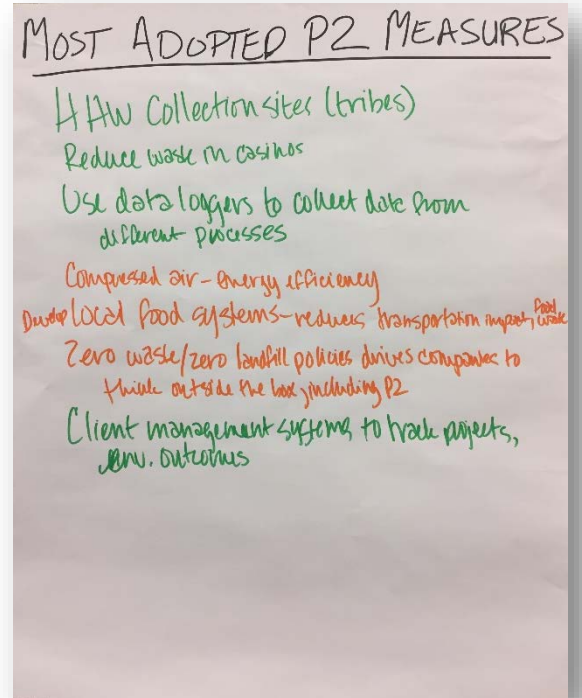 MOST ADOPTED P2 MEASURES
HHW Collection sites (tribes)
Reduce waste in casinos
Use data loggers to collect date from
different processes
Compressed air - energy efficiency
Develop local food systems - reduces transportation impact, food waste
Zero waste/zero landfill policies drives companies to
think outside the box, including P2
Client management systems to track projects,
env. outcomes